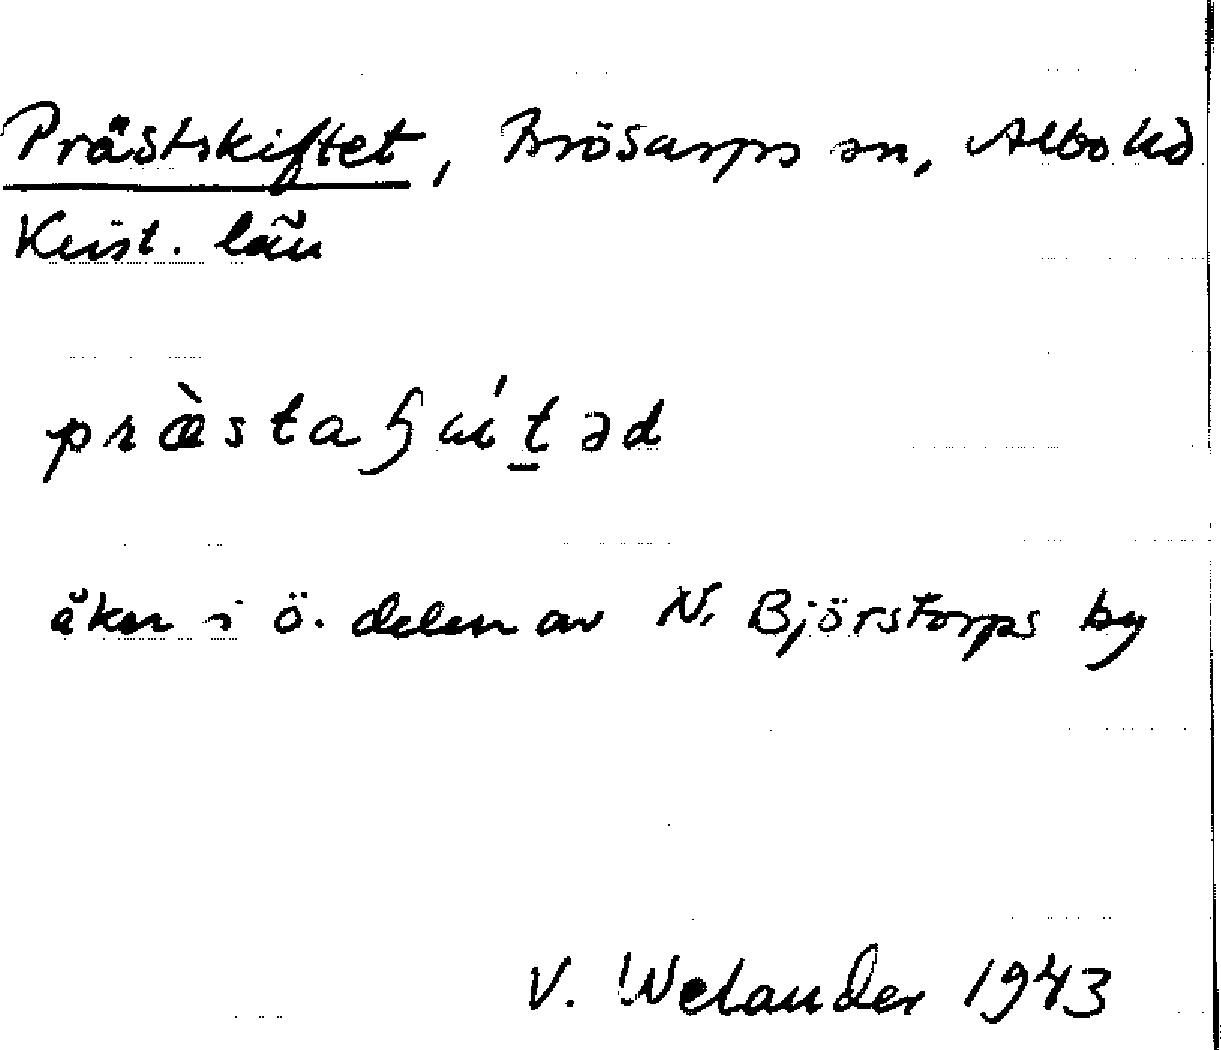 Prästskiftet, Brösarps sn, Albo hd
Krist. län
præ̀staʃɯít̠əd
åker i ö. delen av N. Björstorps by
V. Welander 1943